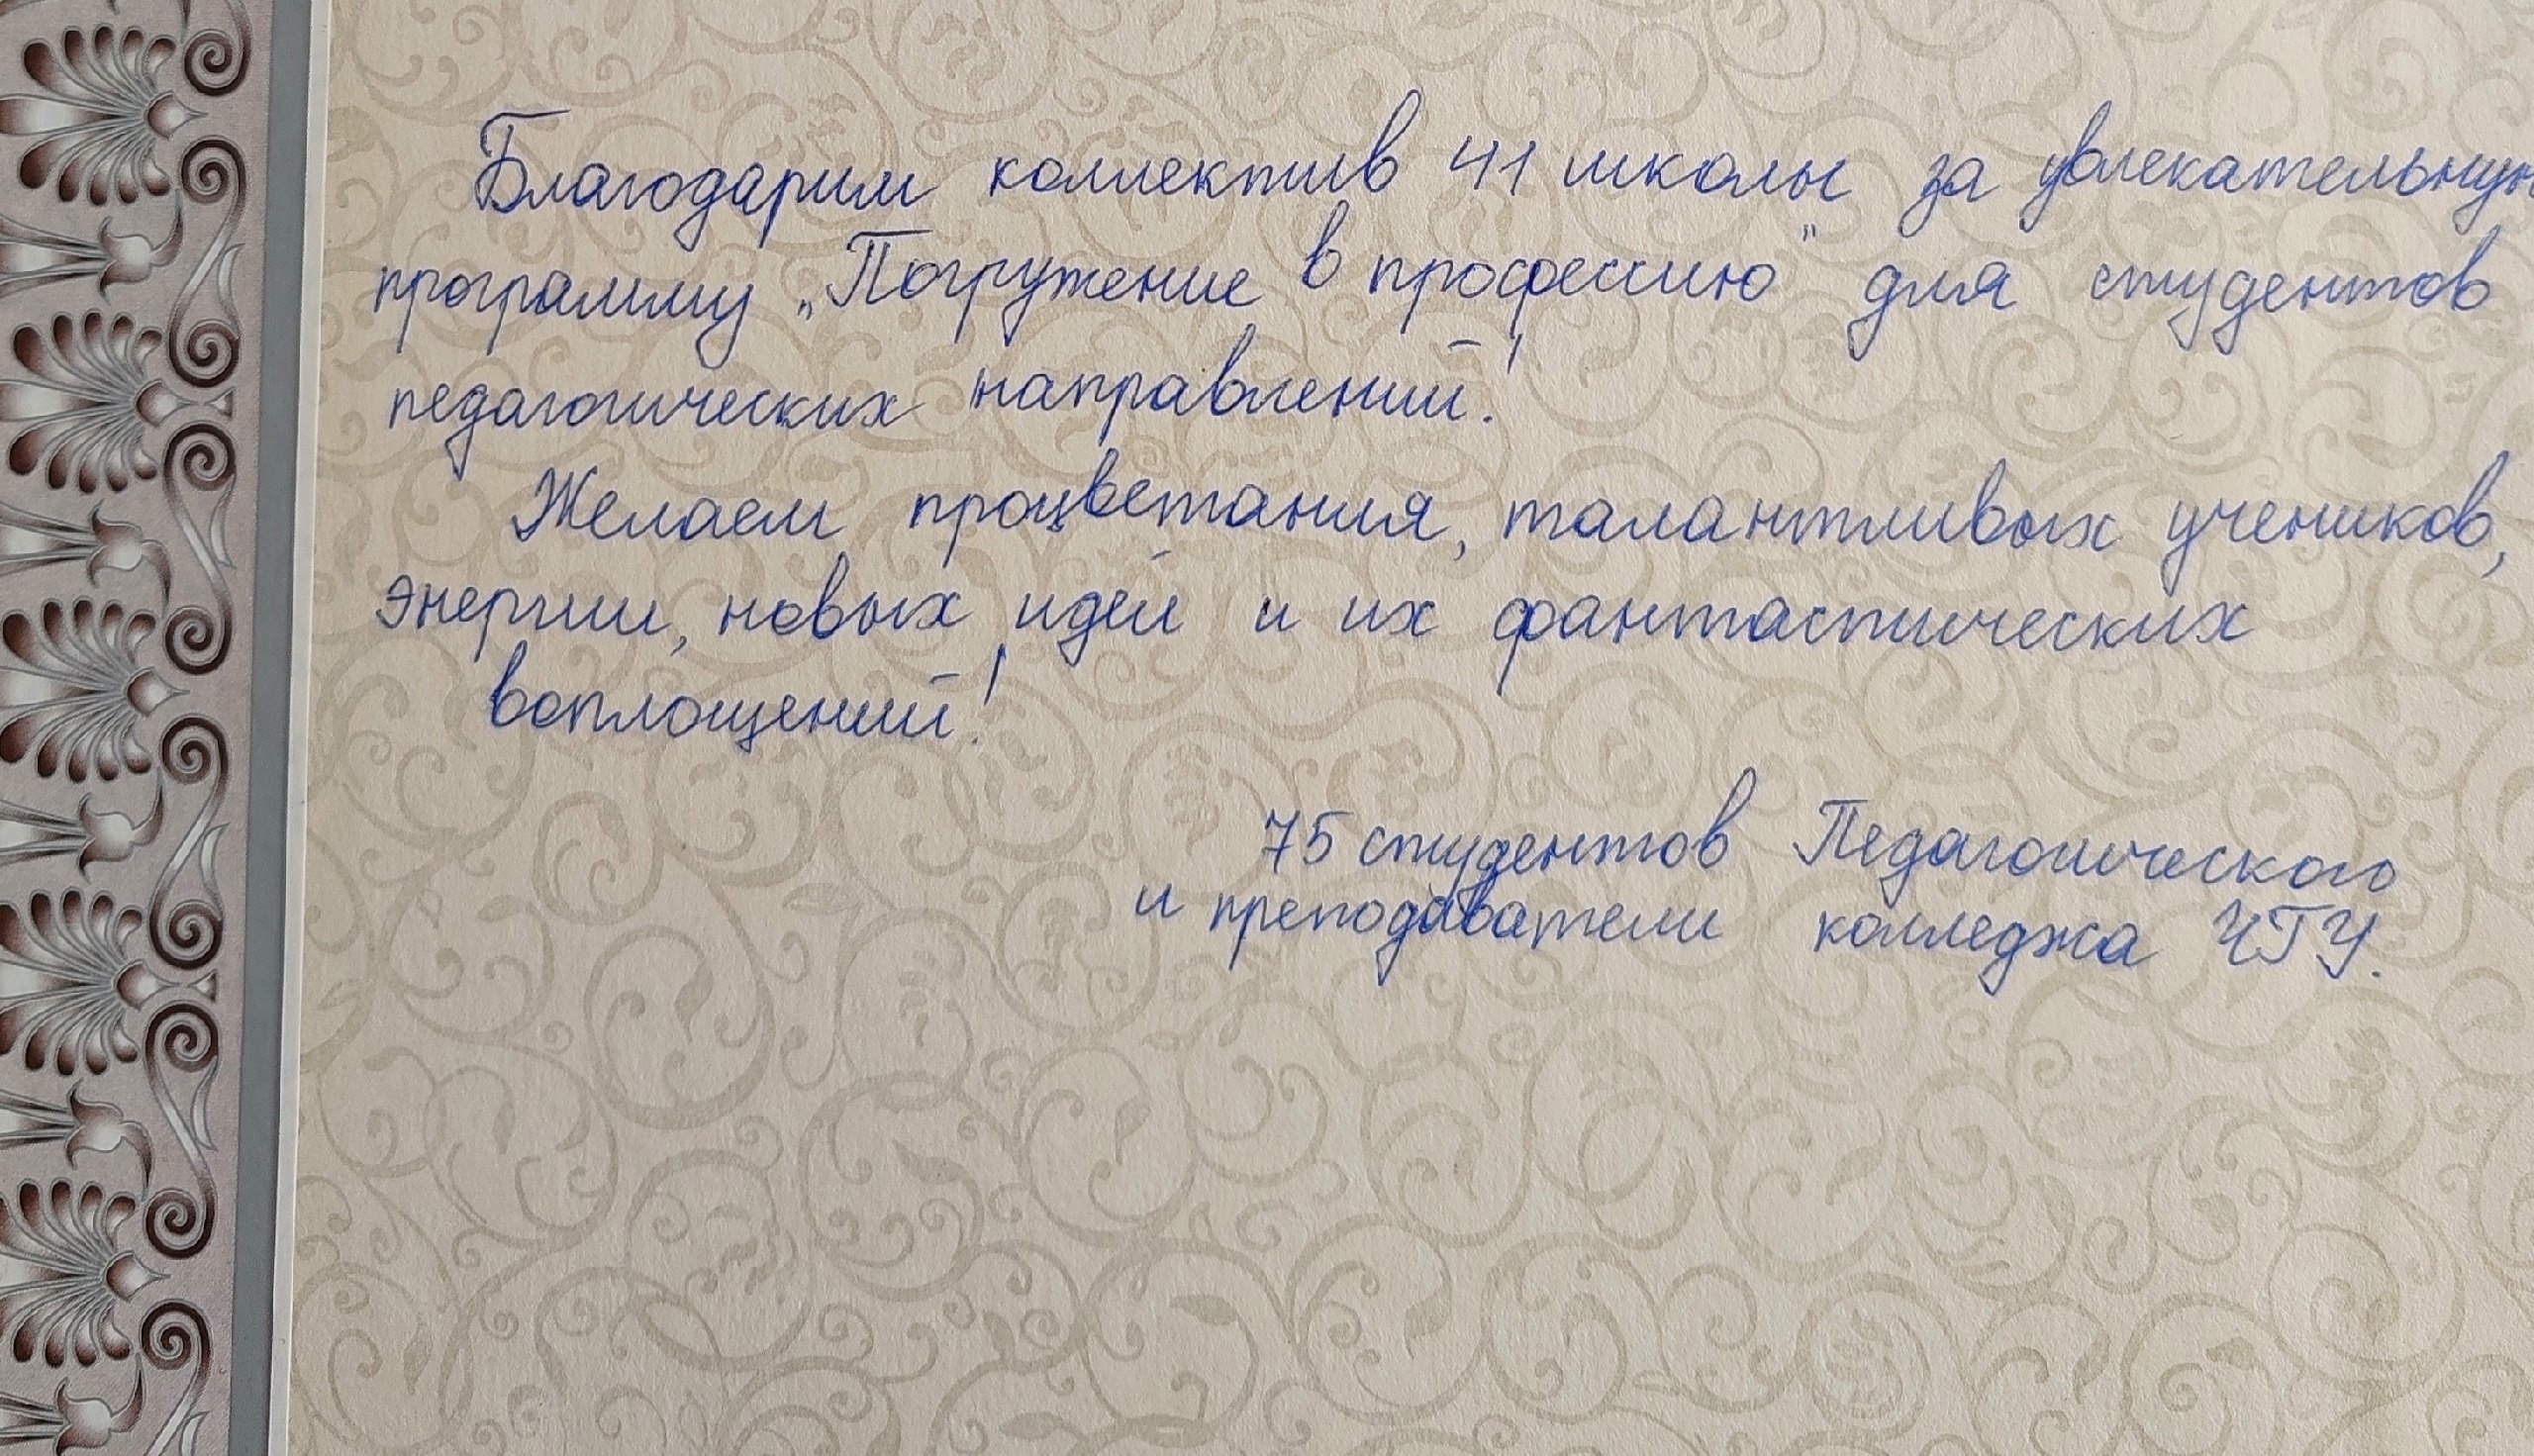 Благодарим коллектив 41 школы за увлекательную
программу „Погружение в профессию" для студентов
педагогических направлений!
Желаем процветания, талантливых учеников,
энергии, новых идей и их фантастических
воплощений!
75 студентов Педагогического
и преподаватели колледжа ЧГУ.